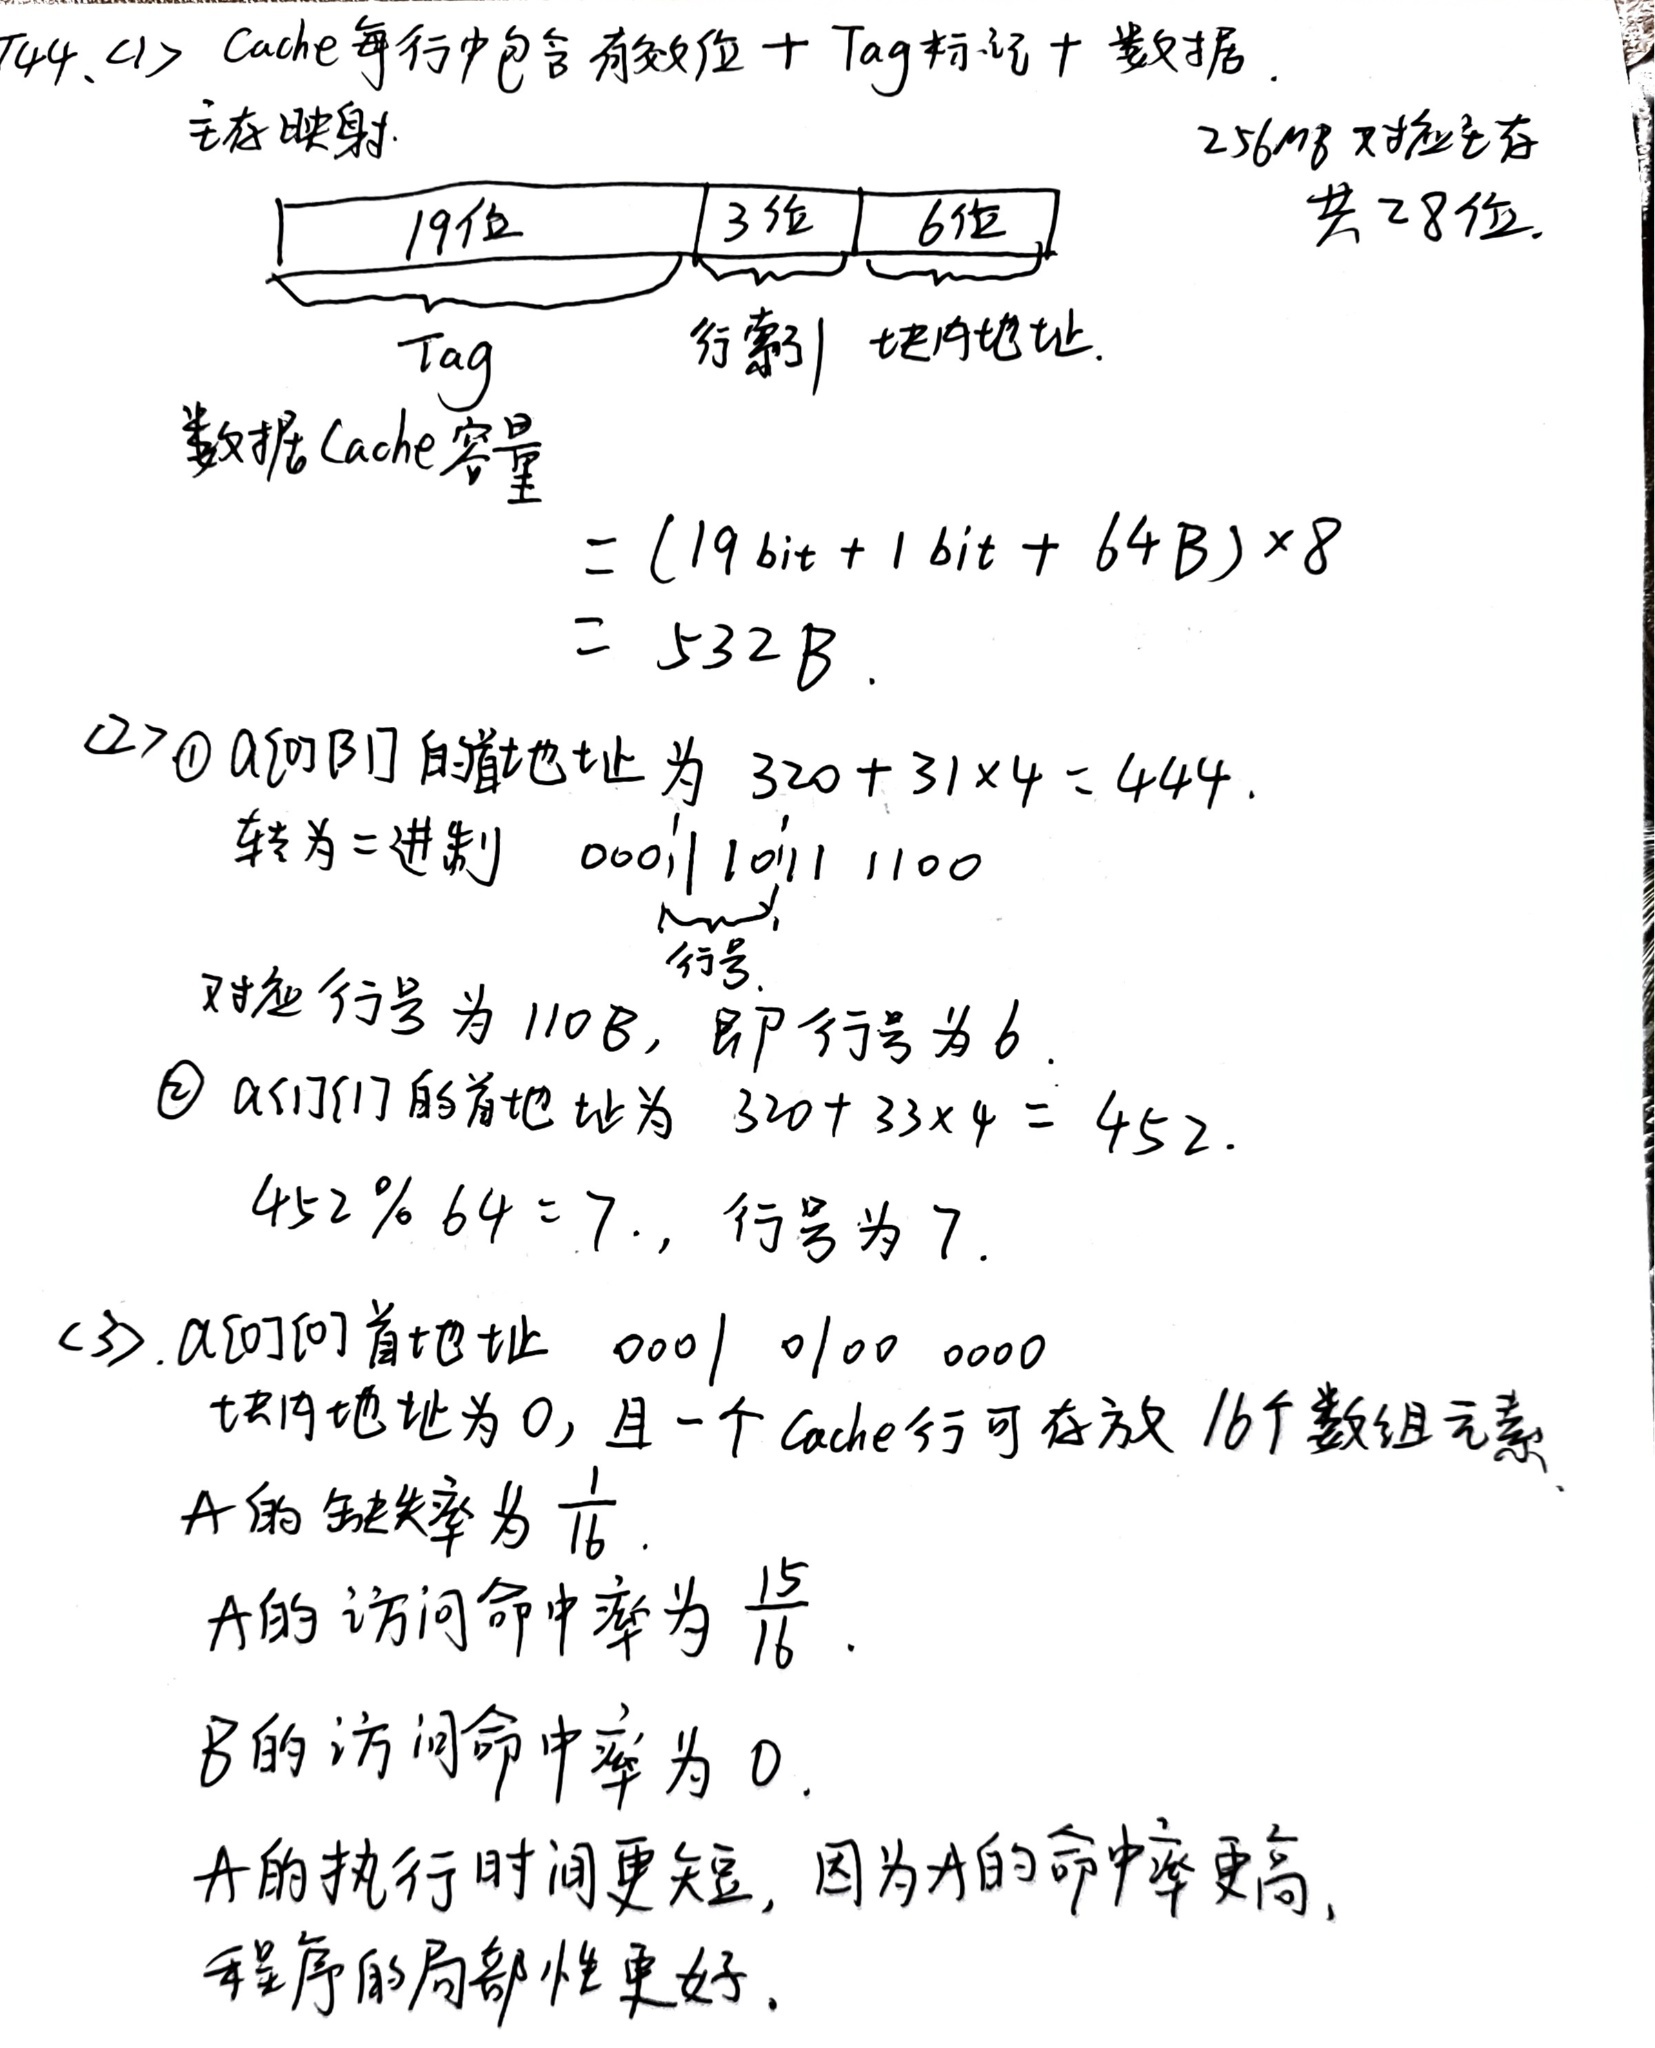 T44、<1> Cache每行中包含有效位 + Tag标记 + 数据.
主存映射.
256MB 对应主存
共28位.
19位 3位 6位
Tag 行索引 块内地址.
数据Cache容量
= (19bit + 1bit + 64B) × 8
= 532B.
<2> ① a[0][31]的首地址为 320 + 31×4 = 444.
转为二进制 0001 1011 1100
行号.
对应行号为110B, 即行号为6.
② a[1][1]的首地址为 320 + 33×4 = 452.
452 % 64 = 7., 行号为7.
<3>. a[0][0]首地址 0001 0100 0000
块内地址为0, 且一个Cache行可存放16个数组元素、
A的缺失率为 1/16.
A的访问命中率为 15/16.
B的访问命中率为0.
A的执行时间更短, 因为A的命中率更高,
程序的局部性更好.